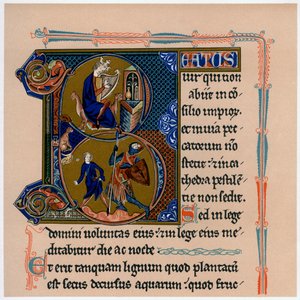 BEATUS
uir qui non
abiit in co(n)
silio impior(um)
et in uia pec
catorum no(n)
stetit: & in ca
thedra pestile(n)tie
non sedit.
Sed in lege
domini uoluntas eius: & in lege eius me
ditabitur die ac nocte
Et erit tanquam lignum quod plantatu(m)
est secus decursus aquarum: quod fruc